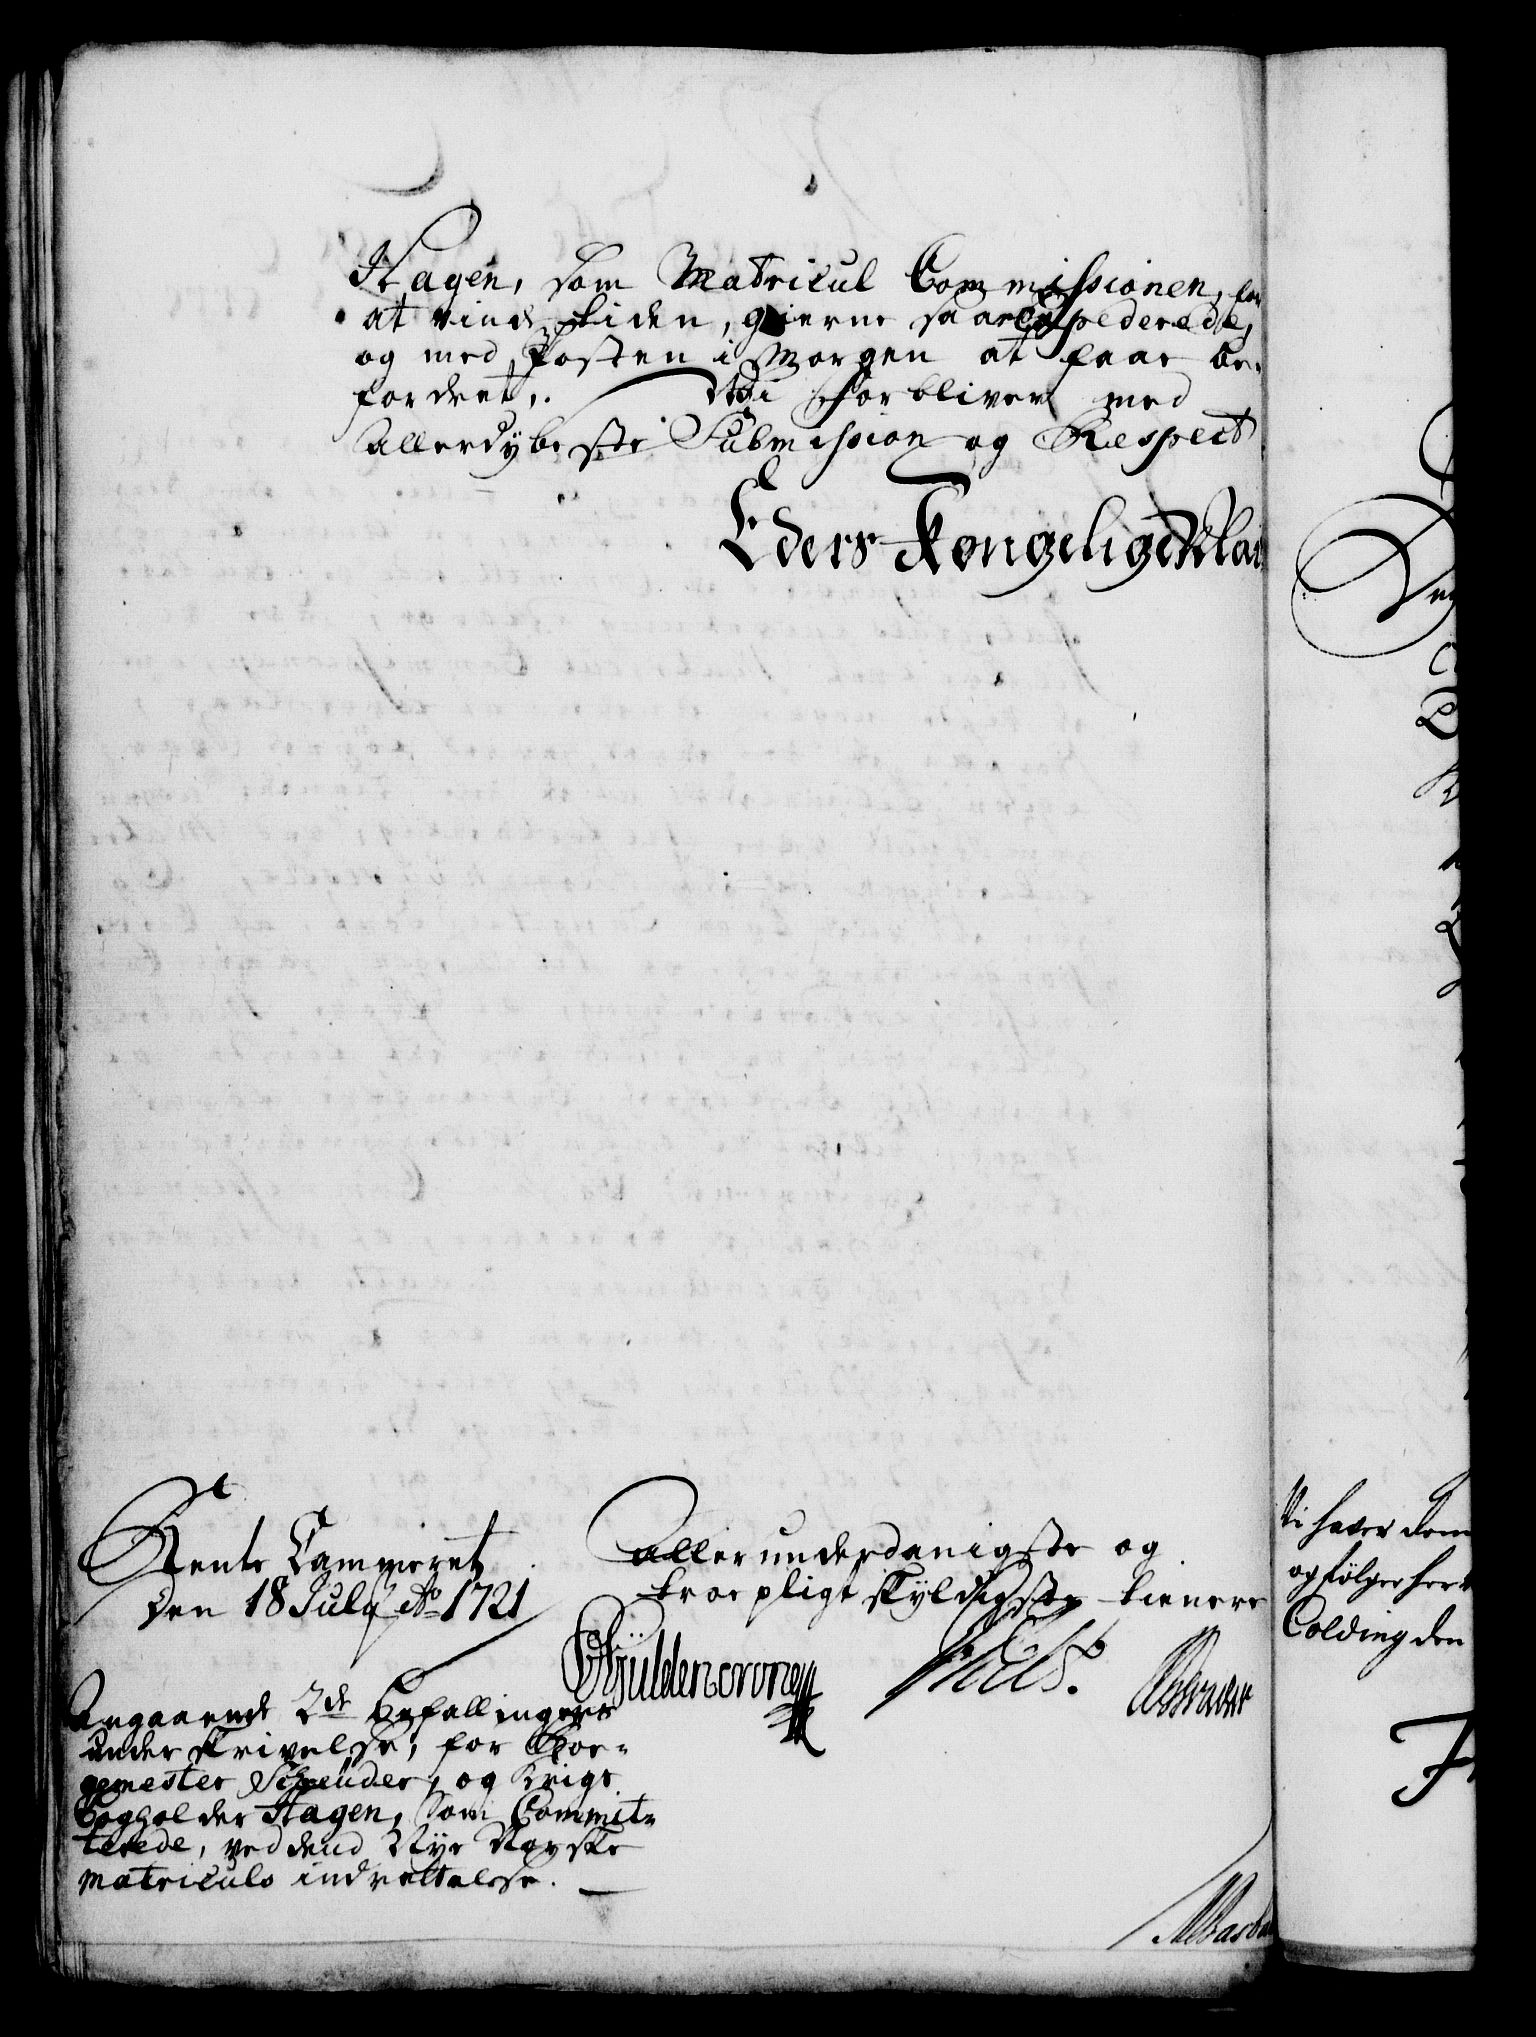 Hagen, som Matricul Commissionen, for
at vinde tiden, gierne saae expederede,
og med Posten i Morgen at faae be-
fordret. Wi forbliver med
allerdybeste Submission og Respect
Eders Kongelige Mai
Rente Cammeret
den 18 July Ao 1721
allerunderdanigste og
troe pligt skyldigste tienere
CGyldencrone
Angaaende 2de Befallingers
underskrivelse, for Boe-
gemester Schreuder, og Krigs
Bogholder Hagen, som Commit-
terede, ved dend Nye Norske
matriculs indrettelse.
Vi haver dem
og følger her
Colding den